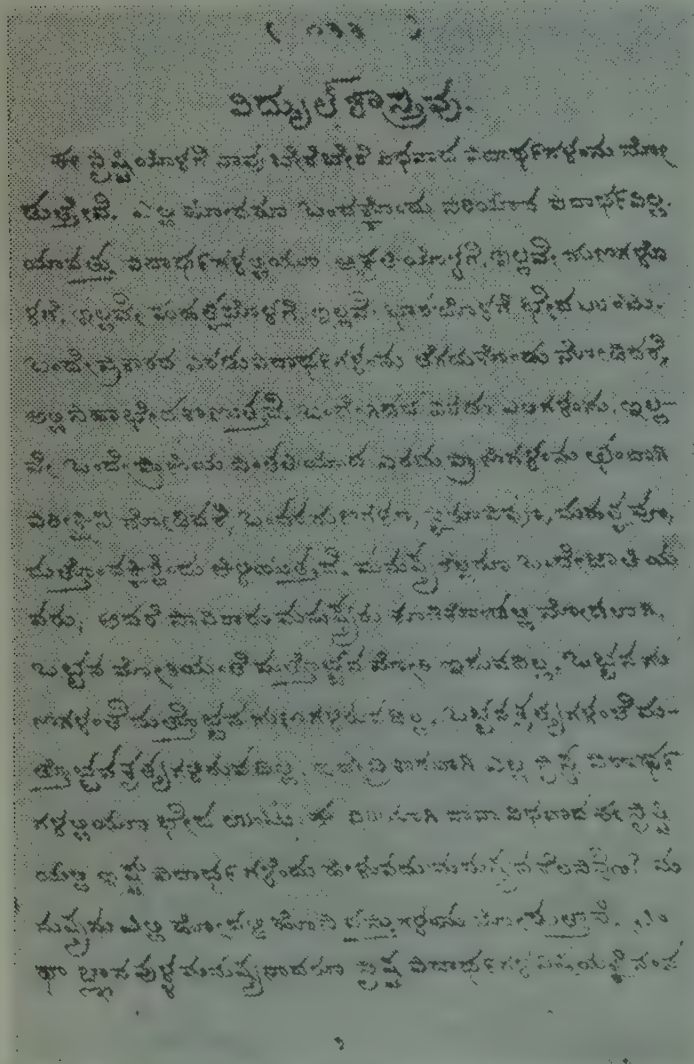 ( ೧೩೩ )
ವಿದ್ಯುಲ್‌ಶಾಸ್ತ್ರವು.
ಈ ಸೃಷ್ಟಿಯೊಳಗೆ ನಾವು ಬೇರೆಬೇರೆ ವಿಧವಾದ ಪದಾರ್ಥಗಳಂನು ನೋ
ಡುತ್ತೇವೆ. ಎಲ್ಲಿ ಹೋದರೂ ಒಂದಕ್ಕೊಂದು ಸರಿಯಾದ ಪದಾರ್ಥವಿಲ್ಲ.
ಯಾವತ್ತು ಪದಾರ್ಥಗಳಲ್ಲಿಯೂ ಆಕೃತಿಯೊಳಗೆ, ಇಲ್ಲವೇ ಗುಣಗಳೊ
ಳಗೆ, ಇಲ್ಲವೇ ಮಹತ್ವದೊಳಗೆ, ಇಲ್ಲವೆ ಭಾರದೊಳಗೆ ಭೇದ ಉಂಟು.
ಒಂದೇಪ್ರಕಾರದ ಎರಡುಪದಾರ್ಥಗಳಂನು ತೆಗದುಕೊಂಡು ನೋಡಿದರೆ,
ಅಲ್ಲಿ ಸಹಾ ಭೇದ ಕಾಣುತ್ತದೆ. ಒಂದೇ ಗಿಡದ ಎರಡು ಎಲೆಗಳಂನು, ಇಲ್ಲ
ವೇ ಒಂದೇ ಜಾತಿಯ ಎರಡು ಪ್ರಾಣಿಗಳಂನು ಛಂದಾಗಿ
ಪರೀಕ್ಷಿಸಿ ನೋಡಿದರೆ, ಒಂದರ ಗುಣಗಳೂ, ಮಹತ್ವವೂ,
ಮತ್ತೊಂದಕ್ಕಿಲ್ಲೆಂದು ತಿಳಿಯುತ್ತದೆ. ಮನುಷ್ಯರೆಲ್ಲರೂ ಒಂದೇ ಜಾತಿಯ
ವರು; ಆದರೆ ಸಾವಿರಾರು ಮನುಷ್ಯರು ನೋಡಲಾಗಿ,
ಒಬ್ಬನ ಮೋರೆಯಂತೆ ಮತ್ತೊಬ್ಬನ ಮೋರೆ ಇರುವದಿಲ್ಲ. ಒಬ್ಬನ ಗು
ಣಗಳಂತೆ ಮತ್ತೊಬ್ಬನ ಗುಣಗಳಿರುವದಿಲ್ಲ. ಒಬ್ಬನ ಕೃತ್ಯಗಳಂತೆ ಮ-
ತ್ತೊಬ್ಬನ ಕೃತ್ಯಗಳಿರುವದಿಲ್ಲ. ಇದೇ ಪ್ರಕಾರವಾಗಿ ಎಲ್ಲ ಸೃಷ್ಟ ಪದಾರ್ಥ
ಗಳಲ್ಲಿಯೂ ಭೇದ ಉಂಟು. ನಾನಾ ವಿಧವಾದ ಈ ಸೃಷ್ಟಿ
ಯಲ್ಲಿ ಇಷ್ಟು ಪದಾರ್ಥಗಳೆಂದು ಹೇಳುವದು ಮನುಷ್ಯನ ಕೆಲಸವೇನು? ಮ
ನುಷ್ಯನು ಎಲ್ಲಿ ಹೋದಲ್ಲಿ ಹೊಸ ವಸ್ತುಗಳಂನು ನೋಡುತ್ತಾನೆ.
ಜ್ಞಾನವುಳ್ಳ ಮನುಷ್ಯನಾದರೂ ಸೃಷ್ಟ ಪದಾರ್ಥಗಳ ವಿಷಯಕ್ಕೆ
೧